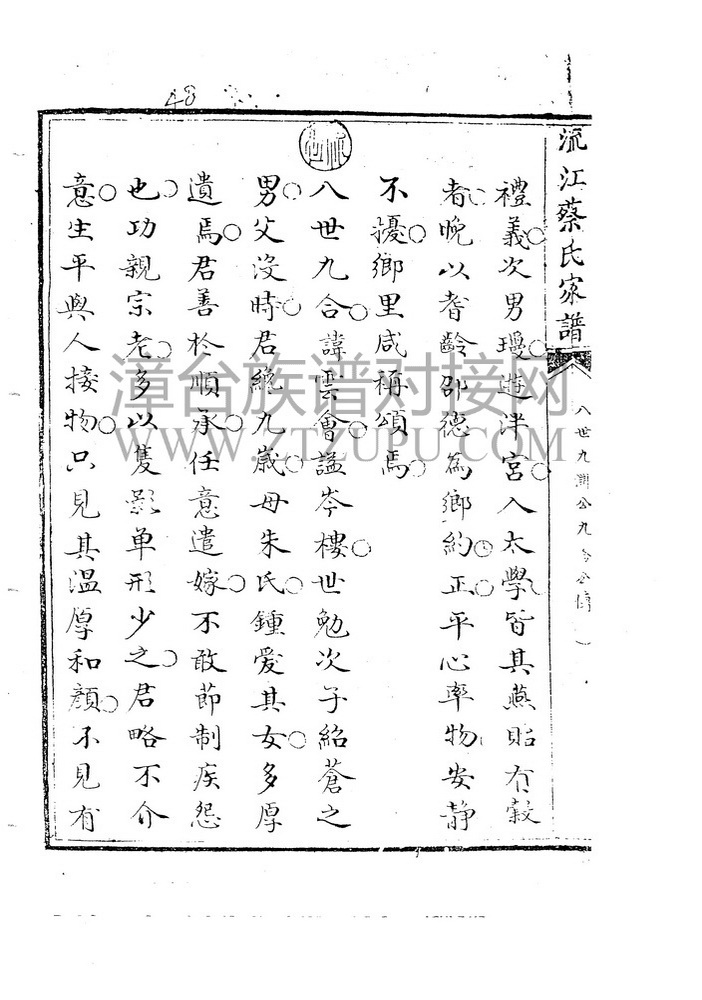 48
流江蔡氏家譜
八世九
禮義次男瓊遊泮宮入太學皆其燕貽有穀
者晚以耆齡邵德為鄉約正平心率物安静
不擾鄉里咸稱頌焉
八世九合諱雲會謚岑樓世勉次子紹蒼之
男父沒時君纔九歲母朱氏鍾愛其女多厚
遺焉君善於順承任意遣嫁不敢節制疾怨
也功親宗老多以隻影单形少之君略不介
意生平與人接物只見其温厚和顏不見有
漳台族谱对接网
WWW.ZTZUPU.COM